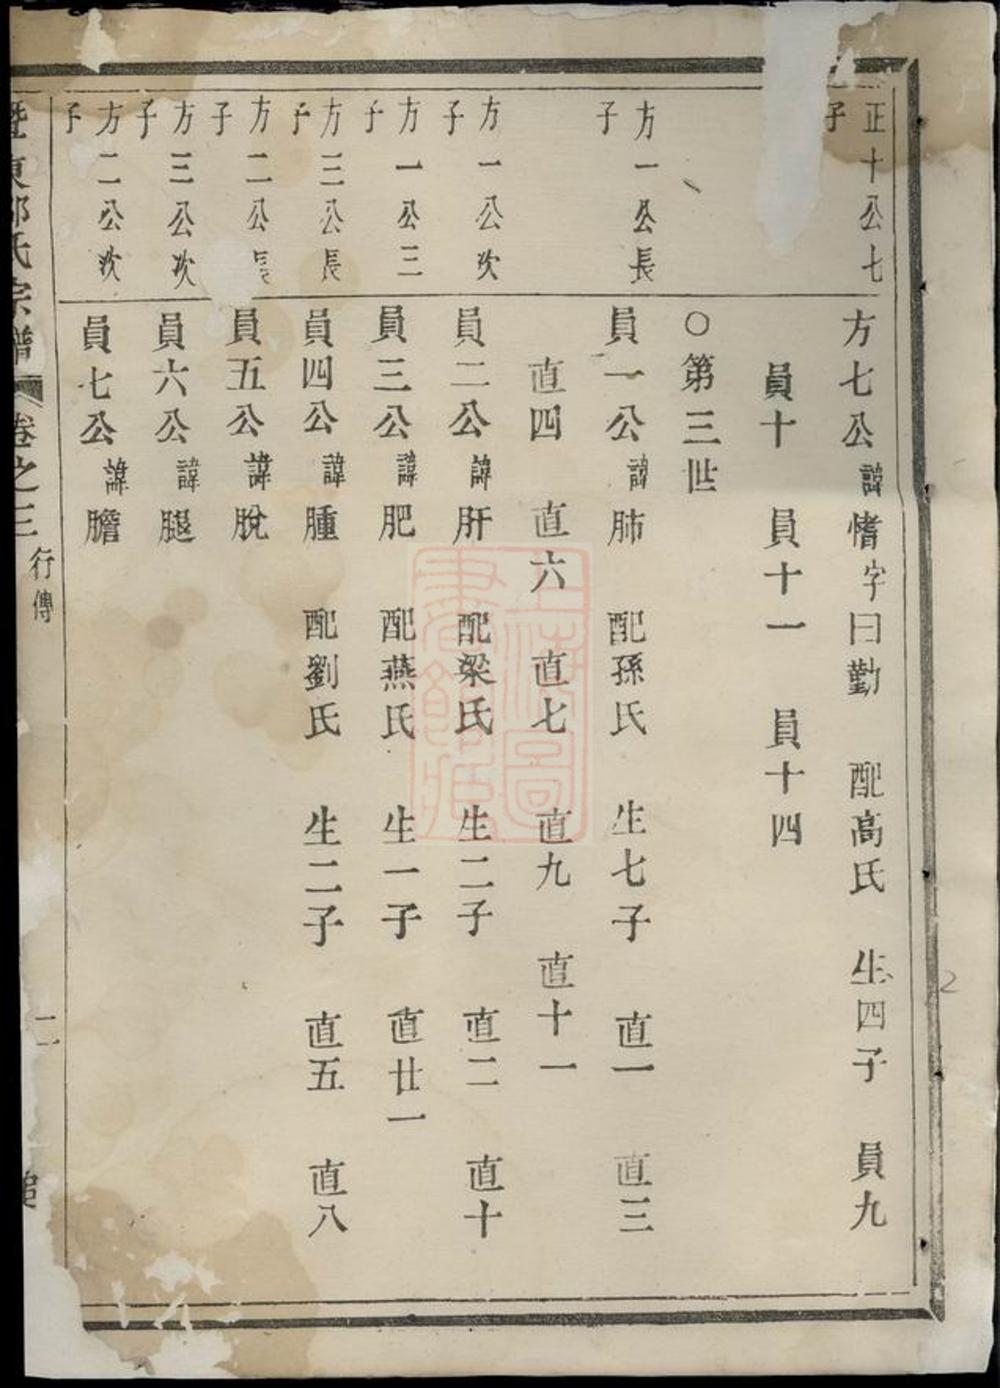 正十公七子
方七公諱愭字曰勤 配高氏 生四子 員九
員十 員十一 員十四
○第三世
方一公長子
員一公諱肺 配孫氏 生七子 直一 直三
直四 直六 直七 直九 直十一
方一公次子
員二公諱肝 配梁氏 生二子 直二 直十
方一公三子
員三公諱肥 配燕氏 生一子 直廿一
方三公長子
員四公諱腫 配劉氏 生二子 直五 直八
方二公長子
員五公諱脫
方三公次子
員六公諱腿
方二公次子
員七公諱膽
暨東邵氏宗譜 卷之三 行傳 二
上海圖書館藏